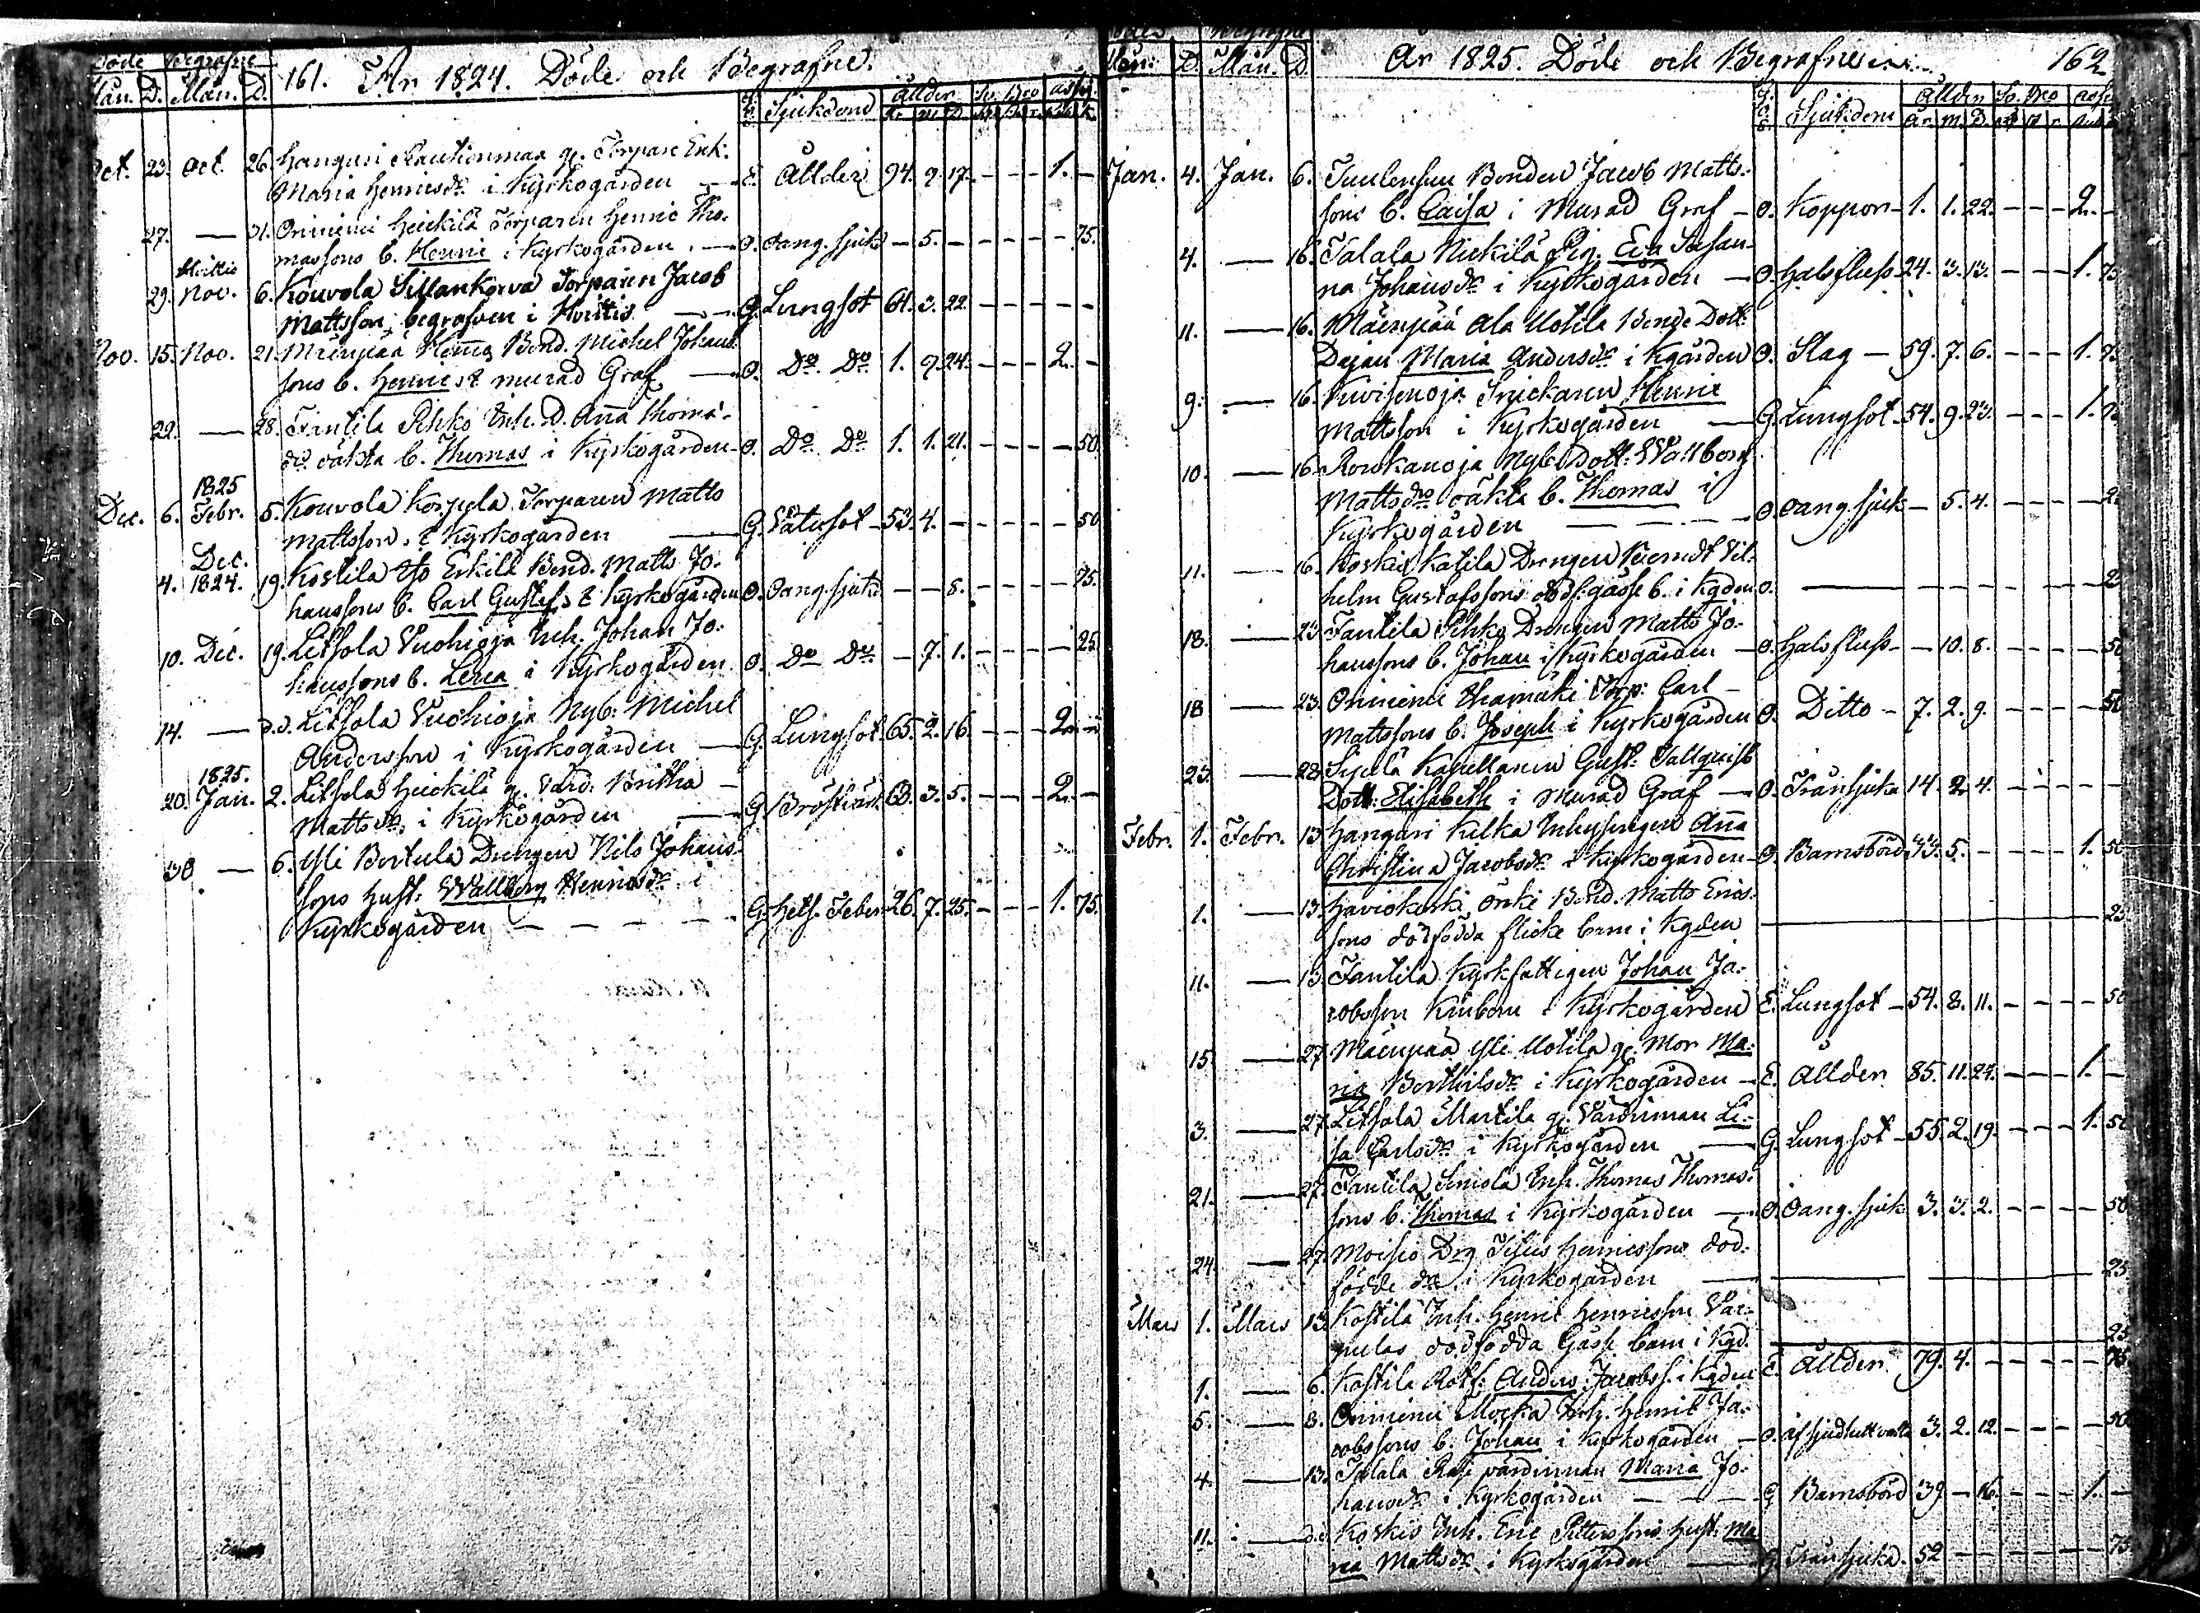 Döde Begrafne
Mån. D. Mån. D. 161. År 1824. Döde och Begrafne.
Sjukdom Ållder
Oct. 23. Oct. 26. Hanguri Rautionmaa gl. Torpare Enk:
Maria Henricsdr i Kyrkogården — E. Ållder 94. 9. 17. — — — 1. —
27. — 31. Onniemi Heickilä Torparen Henric Tho-
massons b. Henric i Kyrkogården. — O. Oang. sjuk — 5. — — — — — 75.
Hvittis
29. Nov. 6. Kouvola Sillankorva Torparen Jacob
Mattsson, begrafven i Hvittis — G. Lungsot 61. 3. 22. — — — — —
Nov. 15. Nov. 21. Mäenpää Bond. Michel Johans-
sons b. Henric i murad Graf — O. Do Do 1. 9. 24. — — — 2. —
22. — 28. Tantila Pihko Inh. D. Anna Thomæ-
dr oäkta b. Thomas i Kyrkogården — O. Do Do 1. 1. 21. — — — — 50.
1825
Dec. 6. Febr. 5. Kouvola Korpela Torparen Matts
Mattsson, i Kyrkogården — G. Vatusot — 53. 4. — — — — — 50
Dec.
4. 1824. 19. Kostila Yso Erkilä Bond. Matts Jo-
hanssons b. Carl Gustaf, i Kyrkogården O. Oang. sjukd — — 8. — — — — 75.
10. Dec. 19. Leksola Vuohioja Inh. Johan Jo-
hanssons b. Lena i Kyrkogården. O. Do Do — 7. 1. — — — — 25
14. — d.d. Leksola Vuohioja Nyb: Michel
Andersson i Kyrkogården — G. Lungsot. 65. 2. 16. — — — 2. —
1825.
20. Jan. 2. Leksola Heickilä g. Värd. Britha —
Mattsdr, i Kyrkogården — G. Bröstvärk 63. 3. 5. — — — 2. —
30 — 6. Yli Bertula Drengen Nils Johans-
sons hust. Wallborg Henricsdr i
Kyrkogården — — — — G. Hets. Feber 26. 7. 25. — — — 1. 75.
Mån. D. Mån. D. År 1825. Döde och Begrafne 162
Sjukdom Ållder
Jan. 4. Jan. 6. Tuulensuu Bonden Jacob Matts-
sons b. Caisa i Murad Graf — O. Koppor — 1. 1. 22. — — — 2. —
4. — 16. Talala Nickilä Pig. Eva Susan-
na Johansdr i Kyrkogården — O. Halsfluss 24. 3. 13. — — — 1.
11. — 16. Mäenpää Ala Uotila Bonde Dott.
Dejan Maria Andersdr i Kgården O. Slag — 59. 7. 6. — — — 1.
9. — 16. Kivisenoja Snickaren Henric
Mattsson i Kyrkogården — G. Lungsot 54. 9. 23. — — — 1.
10. — 16. Ronkanoja Nyb. Dott: Wallborg
Mattsdrs oäkta b. Thomas i
Kyrkogården — — — O. Oang sjuk — 5. 4. — — — —
11. — 16. Koskis Katila Drengen Berndt Vil-
helm Gustafssons dödf. gosse b. i Kgden O. — — — — —
18. — 23. Tantila Pihko Drengen Matts Jo-
hanssons b. Johan i Kyrkogården — O. Halsfluss — — 10. 8. — — — — 50
18 — 23. Onniemi Torp: Carl —
Mattssons b. Joseph i Kyrkogården O. Ditto — 7. 2. 9. — — — — 50
23. — 28. Sypelä Kapellanen Gust: Tallquist
Dott: Elisabeth i Murad Graf — O. Trånsjuka 14. 2. 4. — — — — —
Febr. 1. Febr. 13. Hanguri Kilka Inhysingen Anna
Christina Jacobsdr i Kyrkogården — O. Barnsbörd 33. 5. — — — — 1. 50
1. — 13. Haviokoski Bond. Matts Erics-
sons dödfödda flicke barn i Kgden — 25
11. — 13. Tantila Kyrkfattigen Johan Ja-
cobsson Kinbom i Kyrkogården E. Lungsot — 54. 8. 11. — — — — 50
15. — 27. Mäenpää Yli Uotila gl. Mor Ma-
ria Berthilsdr i Kyrkogården — E. Ållder 85. 11. 24. — — — 1. —
3. — 27. Leksola Martila gl. Värdinnan Li-
sa Carlsdr i Kyrkogården — G. Lungsot — 55. 2. 19. — — — 1. 50
21. — 27. Tantila Simola Inh. Thomas Thomas-
sons b. Thomas i Kyrkogården — O. Oang. sjuk 3. 3. 2. — — — — 50
24. — 27. Moisio Drg Henricssons död-
födde i Kyrkogården — 25
Mars 1. Mars 13. Kostila Inh. Henric Henricsson
dödfödda Gosse barn i Kgd. — 25
1. — 6. Kostila Rotf: Anders Jacobss. i Kgden E. Ållder. 79. 4. — — — — — 75
5. — 8. Onniemi Inh. Henric Ja-
cobssons b. Johan i Kyrkogården — O. 3. 2. 12. — — — — 50
4. — 13. Talala värdinnan Maria Jo-
hansdr i Kyrkogården — — — G Barnsbörd 39 — 16. — — — 1. —
11. — d.d. Koskis Inh. Eric Pettersons hust. Ma-
ria Mattsdr, i Kyrkogården — G. Trånsjuka. 52 — — — — — — 75